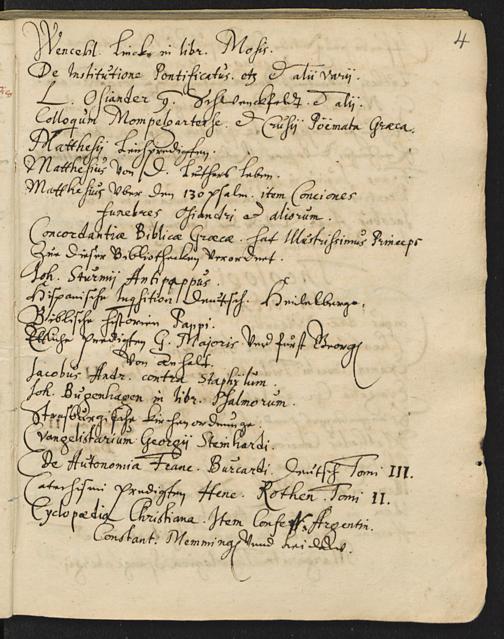 4
Wencesl. Linck in libr. Mosis.
De Institutione Pontificatus. etc et alii varij.
L. Osiander q. Schwenckfeldt. et alij.
Colloquium Mompelgartense. et Crusij Poëmata Græca.
Matthesij Leichpredigten.
Matthesius von D. Luthers Leben.
Matthesius uber den 130 psalm. item Conciones
funebres Osiandri et aliorum.
Concordantiæ Biblicæ Græcæ. hat Illustrissimus Princeps
zue dieser Bibliothecken verordnet.
Joh. Sturmij Antipappus.
Hispanische Inquisition Deutsch. Heidelberge.
Biblische Historien Pappi.
Etliche Predigten G. Majoris und Fürst Georg
von Anhalt.
Jacobus Andr. contra Staphylum.
Joh. Bugenhagen in libr. Psalmorum.
Strasburgische Kirchenordnunge.
Evangelistarium Georgij Steinhardi.
De Autonomia Franc. Burcardi. Deutsch Tomi III.
Catechismi Predigten Henr. Rothen. Tomi II.
Cyclopædia Christiana. Item Confess. Argentin.
Constant. Memming. und